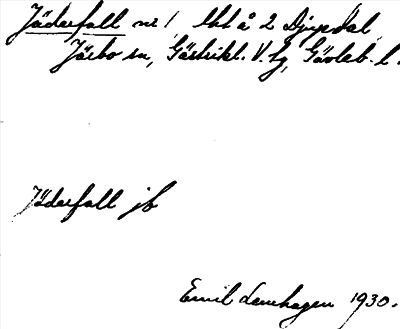 Jäderfall nr 1 lht å 2 Djupdal,
Järbo sn, Gästrikl. V. tg, Gävleb. l.
Jäderfall jb
Emil Lenhagen 1930.